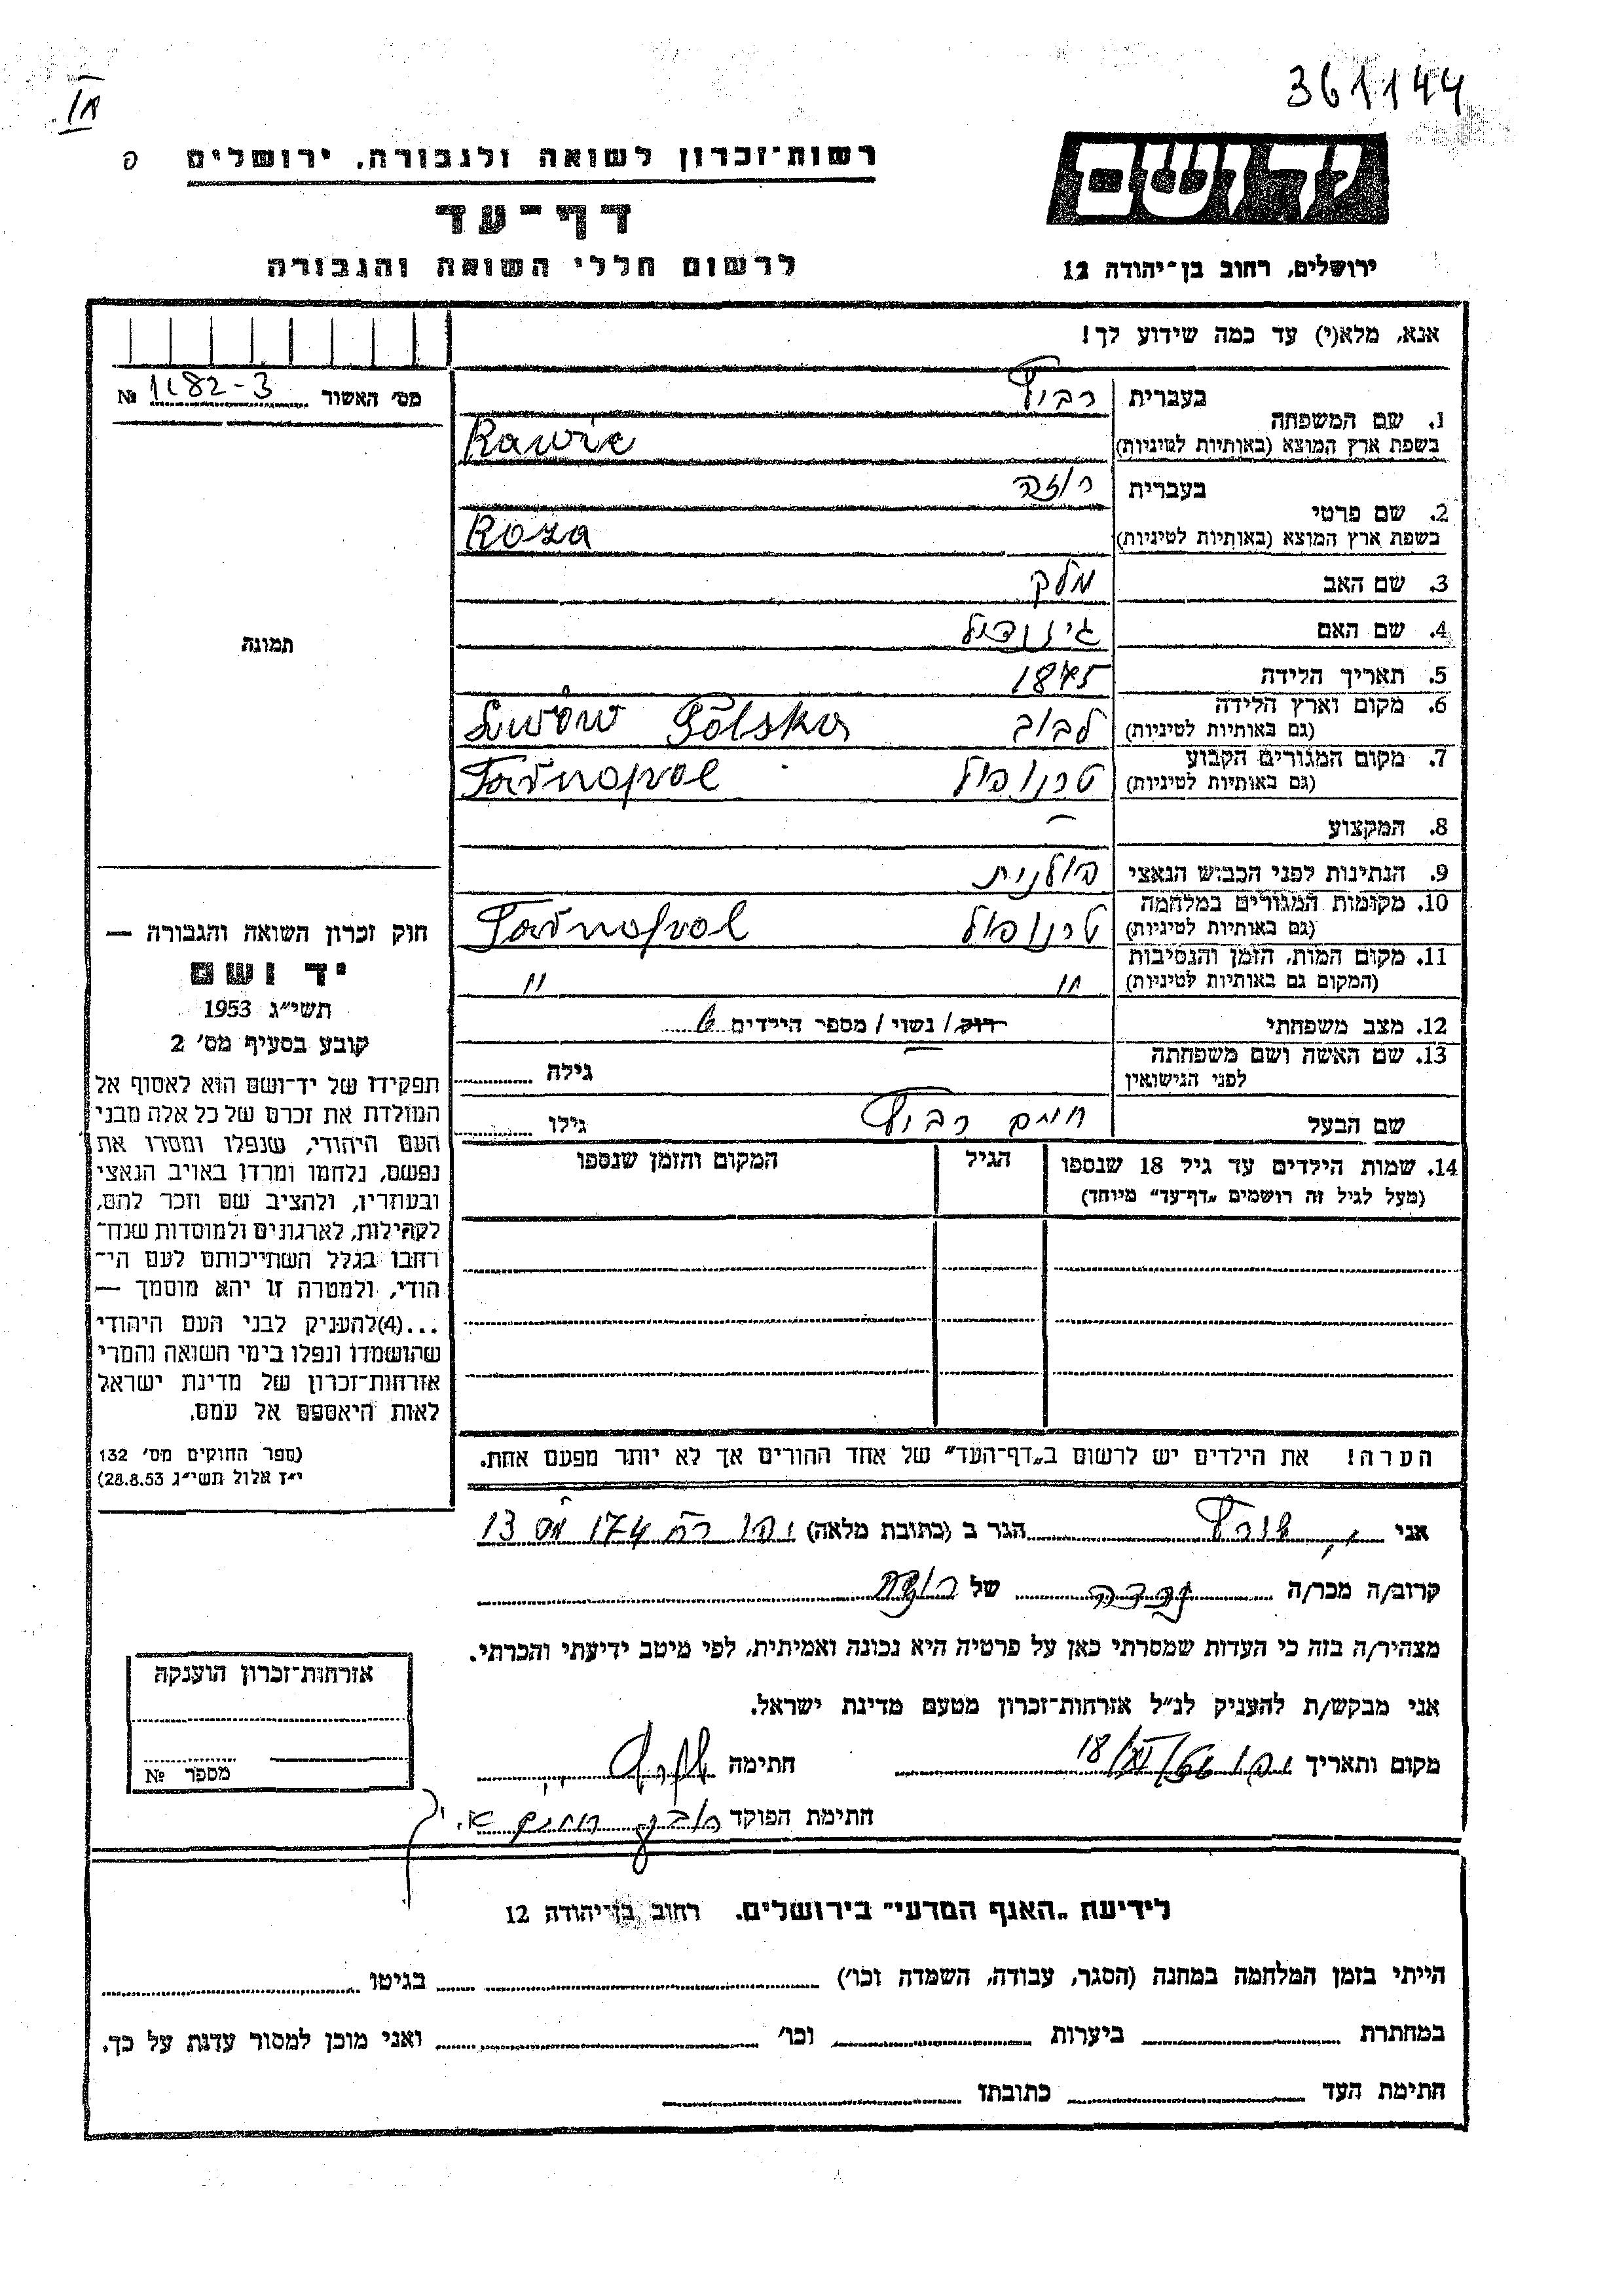 361144
רשות־זכרון לשואה ולגבורה, ירושלים
דף־עד
לרשום חללי השואה והגבורה
יד ושם
ירושלים, רחוב בן־יהודה 12
אנא, מלא(י) עד כמה שידוע לך!
מס' האשור № 1182-3
1. שם המשפחה
בעברית
בשפת ארץ המוצא (באותיות לטיניות) Rawic
2. שם פרטי
בעברית רוזה
בשפת ארץ המוצא (באותיות לטיניות) Roza
3. שם האב מלק
4. שם האם
5. תאריך הלידה 1875
6. מקום וארץ הלידה (גם באותיות לטיניות) לבוב Lwów Polska
7. מקום המגורים הקבוע (גם באותיות לטיניות) טרנופול Tarnopol
8. המקצוע –
9. הנתינות לפני הכבוש הנאצי פולנית
10. מקומות המגורים במלחמה (גם באותיות לטיניות) טרנופול Tarnopol
11. מקום המות, הזמן והנסיבות (המקום גם באותיות לטיניות) " "
12. מצב משפחתי רוק/ נשוי/ מספר הילדים
13. שם האשה ושם משפחתה לפני הנישואין – גילה
שם הבעל חיים גילו
14. שמות הילדים עד גיל 18 שנספו
(מעל לגיל זה רושמים „דף־עד" מיוחד)
הגיל
המקום והזמן שנספו
הערה! את הילדים יש לרשום ב„דף־העד" של אחד ההורים אך לא יותר מפעם אחת.
תמונה
חוק זכרון השואה והגבורה —
יד ושם
תשי"ג 1953
קובע בסעיף מס' 2
תפקידו של יד־ושם הוא לאסוף אל
המולדת את זכרם של כל אלה מבני
העם היהודי, שנפלו ומסרו את
נפשם, נלחמו ומרדו באויב הנאצי
ובעוזריו, ולהציב שם וזכר להם,
לקהילות, לארגונים ולמוסדות שנח־
רבו בגלל השתייכותם לעם הי־
הודי, ולמטרה זו יהא מוסמך —
...(4)להעניק לבני העם היהודי
שהושמדו ונפלו בימי השואה והמרי
אזרחות־זכרון של מדינת ישראל
לאות היאספם אל עמם.
(ספר החוקים מס' 132
י"ז אלול תשי"ג 28.8.53)
אני הגר ב (כתובת מלאה) 174 13
קרוב/ה מכר/ה של
מצהיר/ה בזה כי העדות שמסרתי כאן על פרטיה היא נכונה ואמיתית, לפי מיטב ידיעתי והכרתי.
אני מבקש/ת להעניק לנ"ל אזרחות־זכרון מטעם מדינת ישראל.
מקום ותאריך 18/XI/56 חתימה
חתימת הפוקד
אזרחות־זכרון הוענקה
מספר №
לידיעת „האגף המדעי" בירושלים. רחוב בן־יהודה 12
הייתי בזמן המלחמה במחנה (הסגר, עבודה, השמדה וכו') בגיטו
במחתרת ביערות וכו' ואני מוכן למסור עדות על כך.
חתימת העד כתובתו